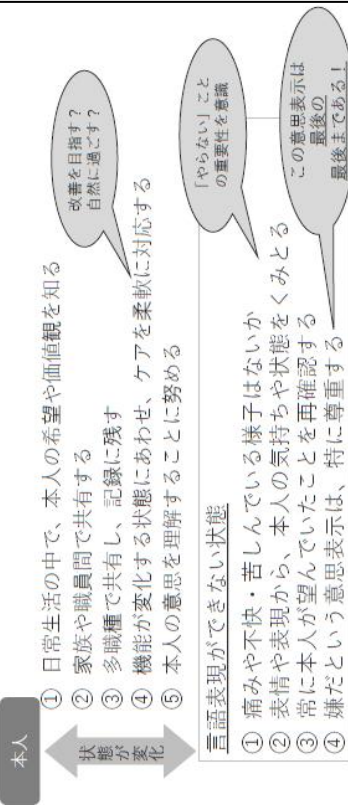 本人
状態が変化
① 日常生活の中で、本人の希望や価値観を知る
② 家族や職員間で共有する
③ 多職種で共有し、記録に残す
④ 機能が変化する状態にあわせ、ケアを柔軟に対応する
⑤ 本人の意思を理解することに努める
改善を目指す?
自然に過ごす?
言語表現ができない状態
① 痛みや不快・苦しんでいる様子はないか
② 表情や表現から、本人の気持ちや状態をくみとる
③ 常に本人が望んでいたことを再確認する
④ 嫌だという意思表示は、特に尊重する
「やらない」こと
の重要性を意識
この意思表示は
最後の
最後まである!